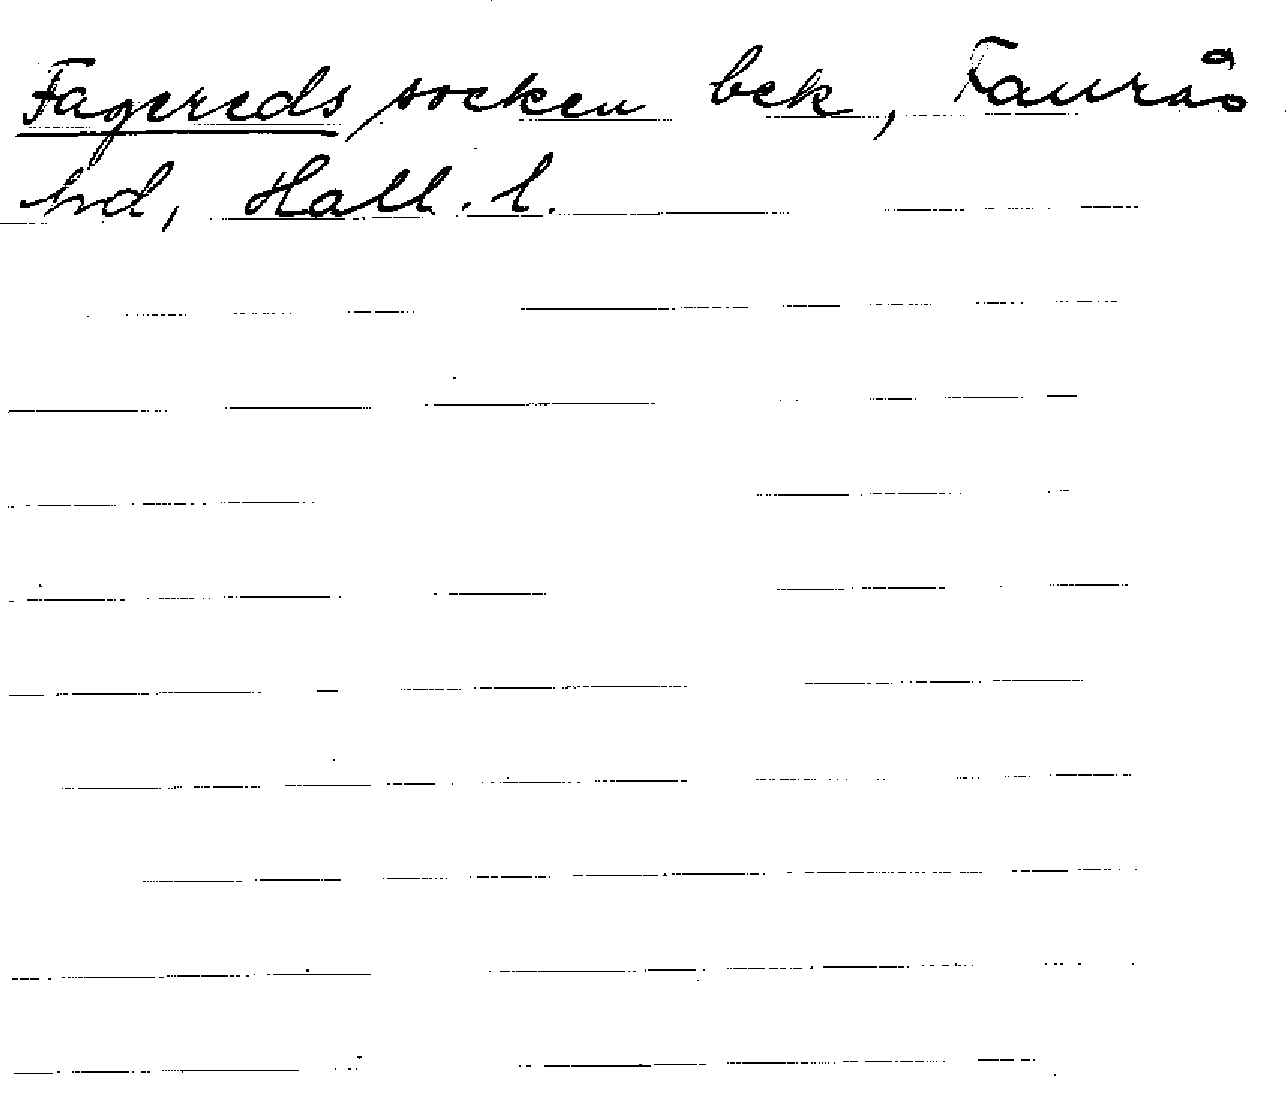 Fagereds socken bek, Faurås
hd, Hall. l.